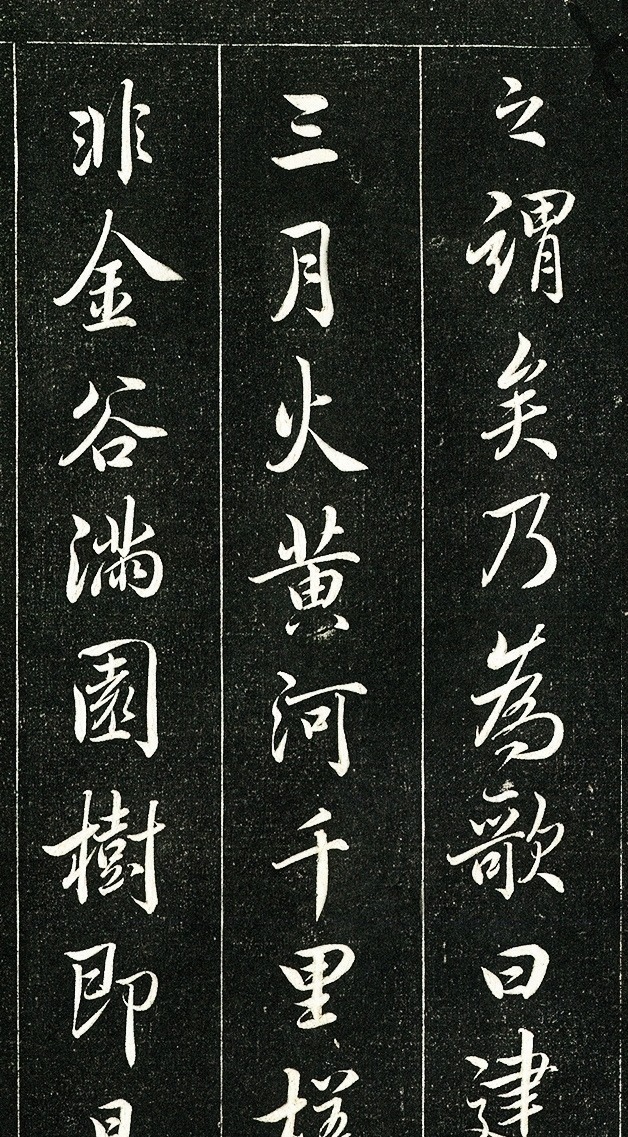 之謂矣乃為歌曰建
三月火黃河千里槎
非金谷滿園樹即